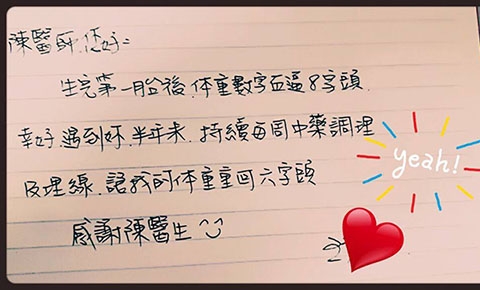 陳醫師.您好=
生完第一胎後.体重數字直逼8字頭.
幸好.遇到妳.半年来.持續每周中藥調理
及埋線.讓我的体重重回六字頭
感謝陳醫生
yeah!